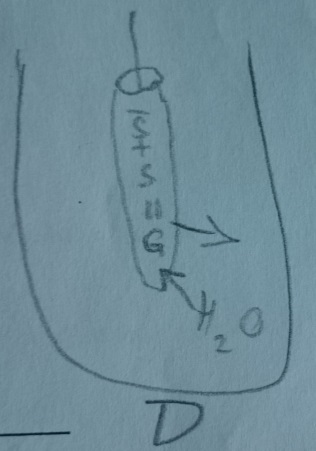 S+S=G
H2O
D